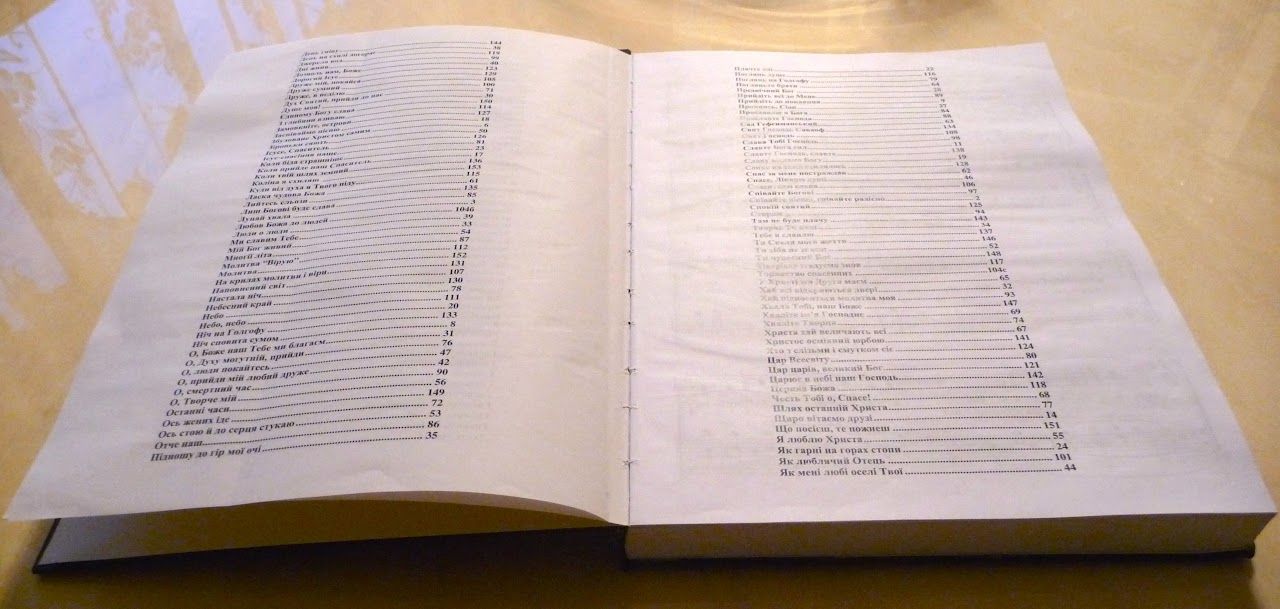 День гніву 144
День на схилі догорає 38
Джерело вод 119
Дні живи 99
Дозволь нам, Боже 40
Дорогий Ісус 123
Друже мій, покайся 129
Друже сумний 105
Друже, в неділю 100
Дух Святий, прийди до нас 71
Душе моя! 30
Єдиному Богу слава 150
З глибини взиваю 114
Замовкніть, острови 127
Заспіваймо пісню 18
Збудовано Христом самим 6
Зіроньки сяють 50
Ісусе, Спаситель 126
Ісус спасіння наше 81
Коли біда страшніше 23
Коли прийде наш Спаситель 17
Коли твій шлях земний 136
Коліна я схиляю 153
Куди від духа я Твого піду 115
Ласка чудова Божа 61
Лийтесь сльози 135
Лиш Богові буде слава 85
Лунай хвала 3
Любов Божа до людей 104б
Люди о люди 39
Ми славим Тебе 33
Мій Бог живий 54
Многії літа 87
Молитва "Вірую" 112
Молитва 152
На крилах молитви і віри 131
Наповнений світ 107
Настала ніч 130
Небесний край 78
Небо 111
Небо, небо 20
Ніч на Голгофу 133
Ніч сповита сумом 8
О, Боже наш Тебе ми благаєм 31
О, Духу могутній, прийди 76
О, люди покайтесь 47
О, прийди мій любий друже 42
О, смертний час 90
О, Творче мій 56
Останні часи 149
Ось жених іде 72
Ось стою й до серця стукаю 53
Отче наш 86
Підношу до гір мої очі 35
Плачте очі 22
Поглянь душе 116
Поглянь на Голгофу 79
Погляньте брати 64
Предвічний Бог 28
Прийдіть всі до Мене 89
Прийдіть до покаяння 9
Прокинься, Сіон 27
Прославляй в Бога 84
Прославте Господа 88
Сад Гефсиманський 63
Свят Господь Саваоф 134
Свят Господь 108
Слава Тобі Господь 98
Славте Бога сил 11
Славте Господа, славте 138
Славу воздамо Богу 19
128
Спас за мене постраждав 62
Спасе, Лікарю душі 46
106
Співайте Богові 97
Співайте пісню, співайте радісно 2
Спокій святий 125
94
Там не буде плачу 143
34
Тебе я славлю 137
Ти Скеля мого життя 146
52
Ти чудесний Бог 148
117
Торжество спасенних 104с
У Христі ми Друга маєм 65
Хай всі відкриються двері 32
Хай підноситься молитва моя 93
Хвала Тобі, наш Боже 147
Хваліте ім'я Господнє 69
Хваліте Творця 74
Христа хай величають всі 67
Христос осміяний юрбою 141
Хто з слізьми і смутком сіє 124
Цар Всесвіту 80
Цар царів, великий Бог 121
Царює в небі наш Господь 142
Церква Божа 118
Честь Тобі о, Спасе! 68
Шлях останній Христа 77
Щиро вітаємо друзі 14
Що посієш, те пожнеш 151
Я люблю Христа 55
Як гарні на горах стопи 24
Як люблячий Отець 101
Як мені любі оселі Твої 44